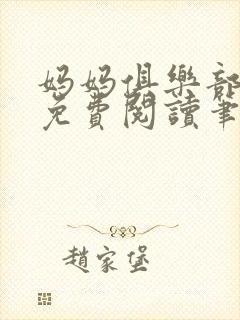 媽媽俱樂部
免費閱讀筆
趙家堡